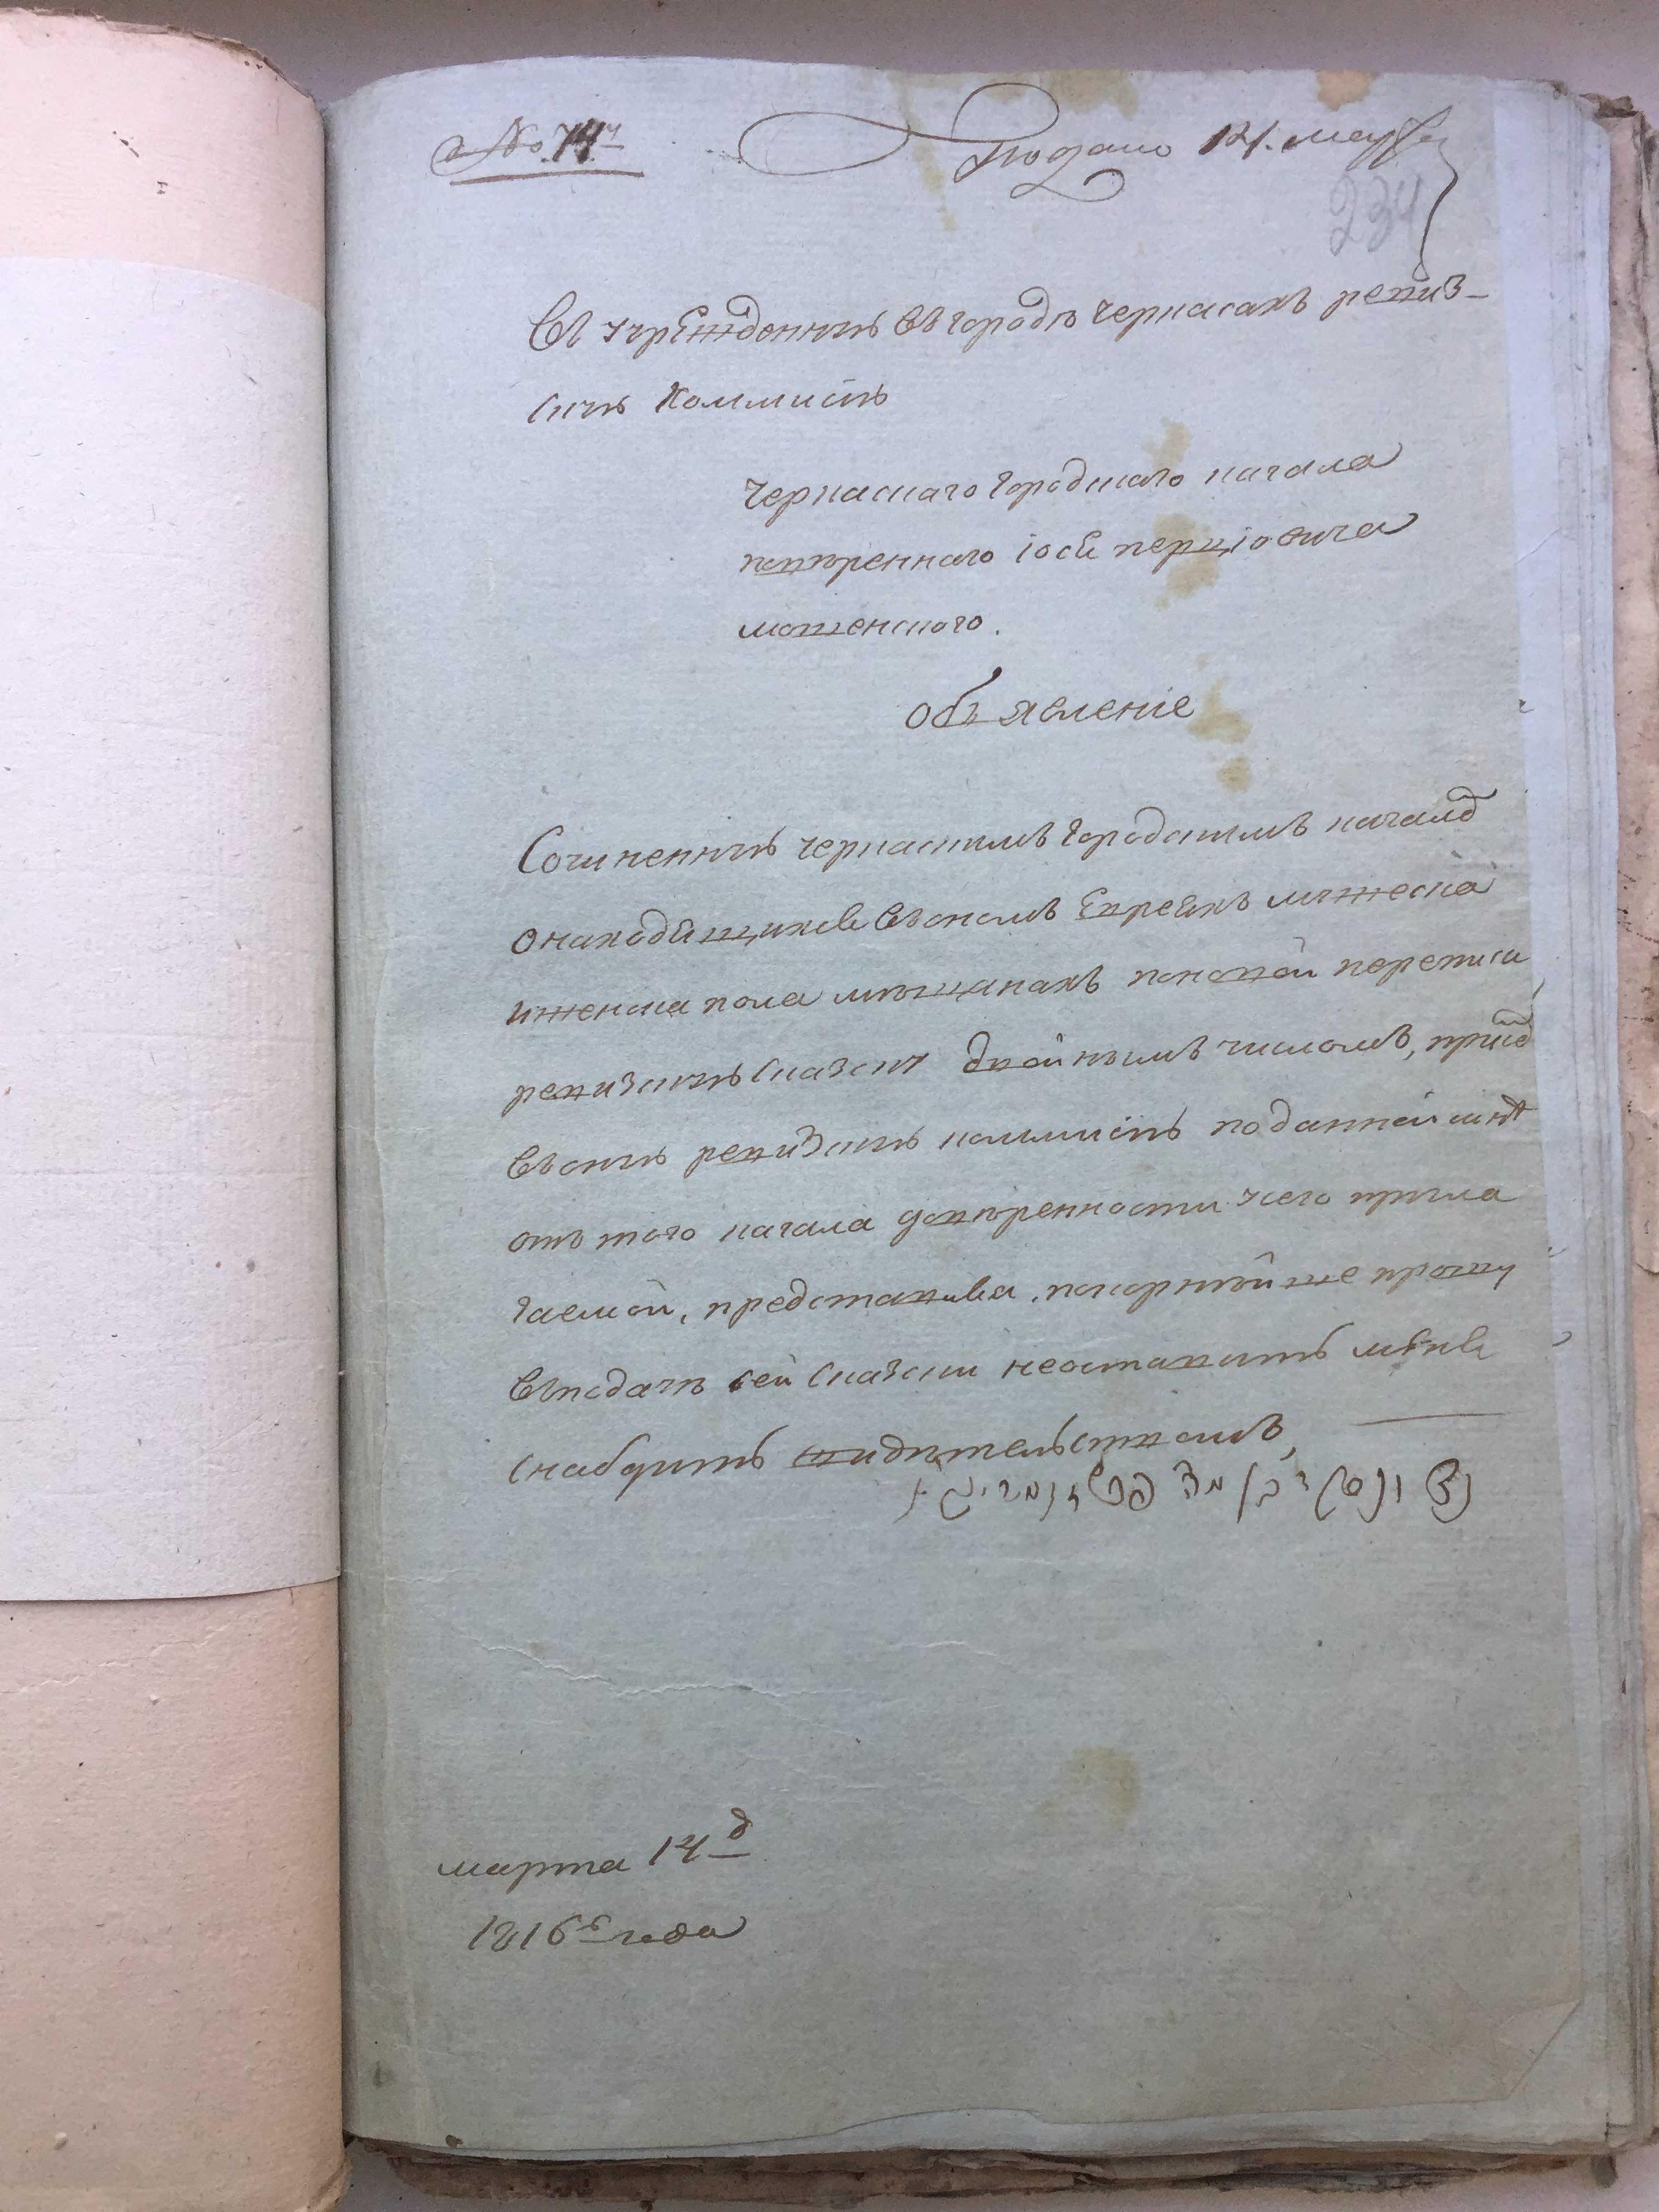 Подано 14. марта
234
Въ учрежденную въ городѣ Черкасахъ ревиз-
скую Коммисію
Черкаскаго городского кагала
повѣреннаго Іося
объявленіе
Сочиненную черкаскимъ городскимъ кагалом
о находящихся въ ономъ Евреяхъ мужеска
и женска пола мѣщанахъ по новой переписи
ревизскую сказку двойнымъ числомъ, при сем
въ оную ревизскую коммисію по данной мнѣ
отъ того кагала довѣренности у сего прила
гаемой, представляя, покорнѣйше прошу
въ подачѣ сей сказки не оставить меня
снабдить свидѣтельствомъ,
марта 14 д
1816 года